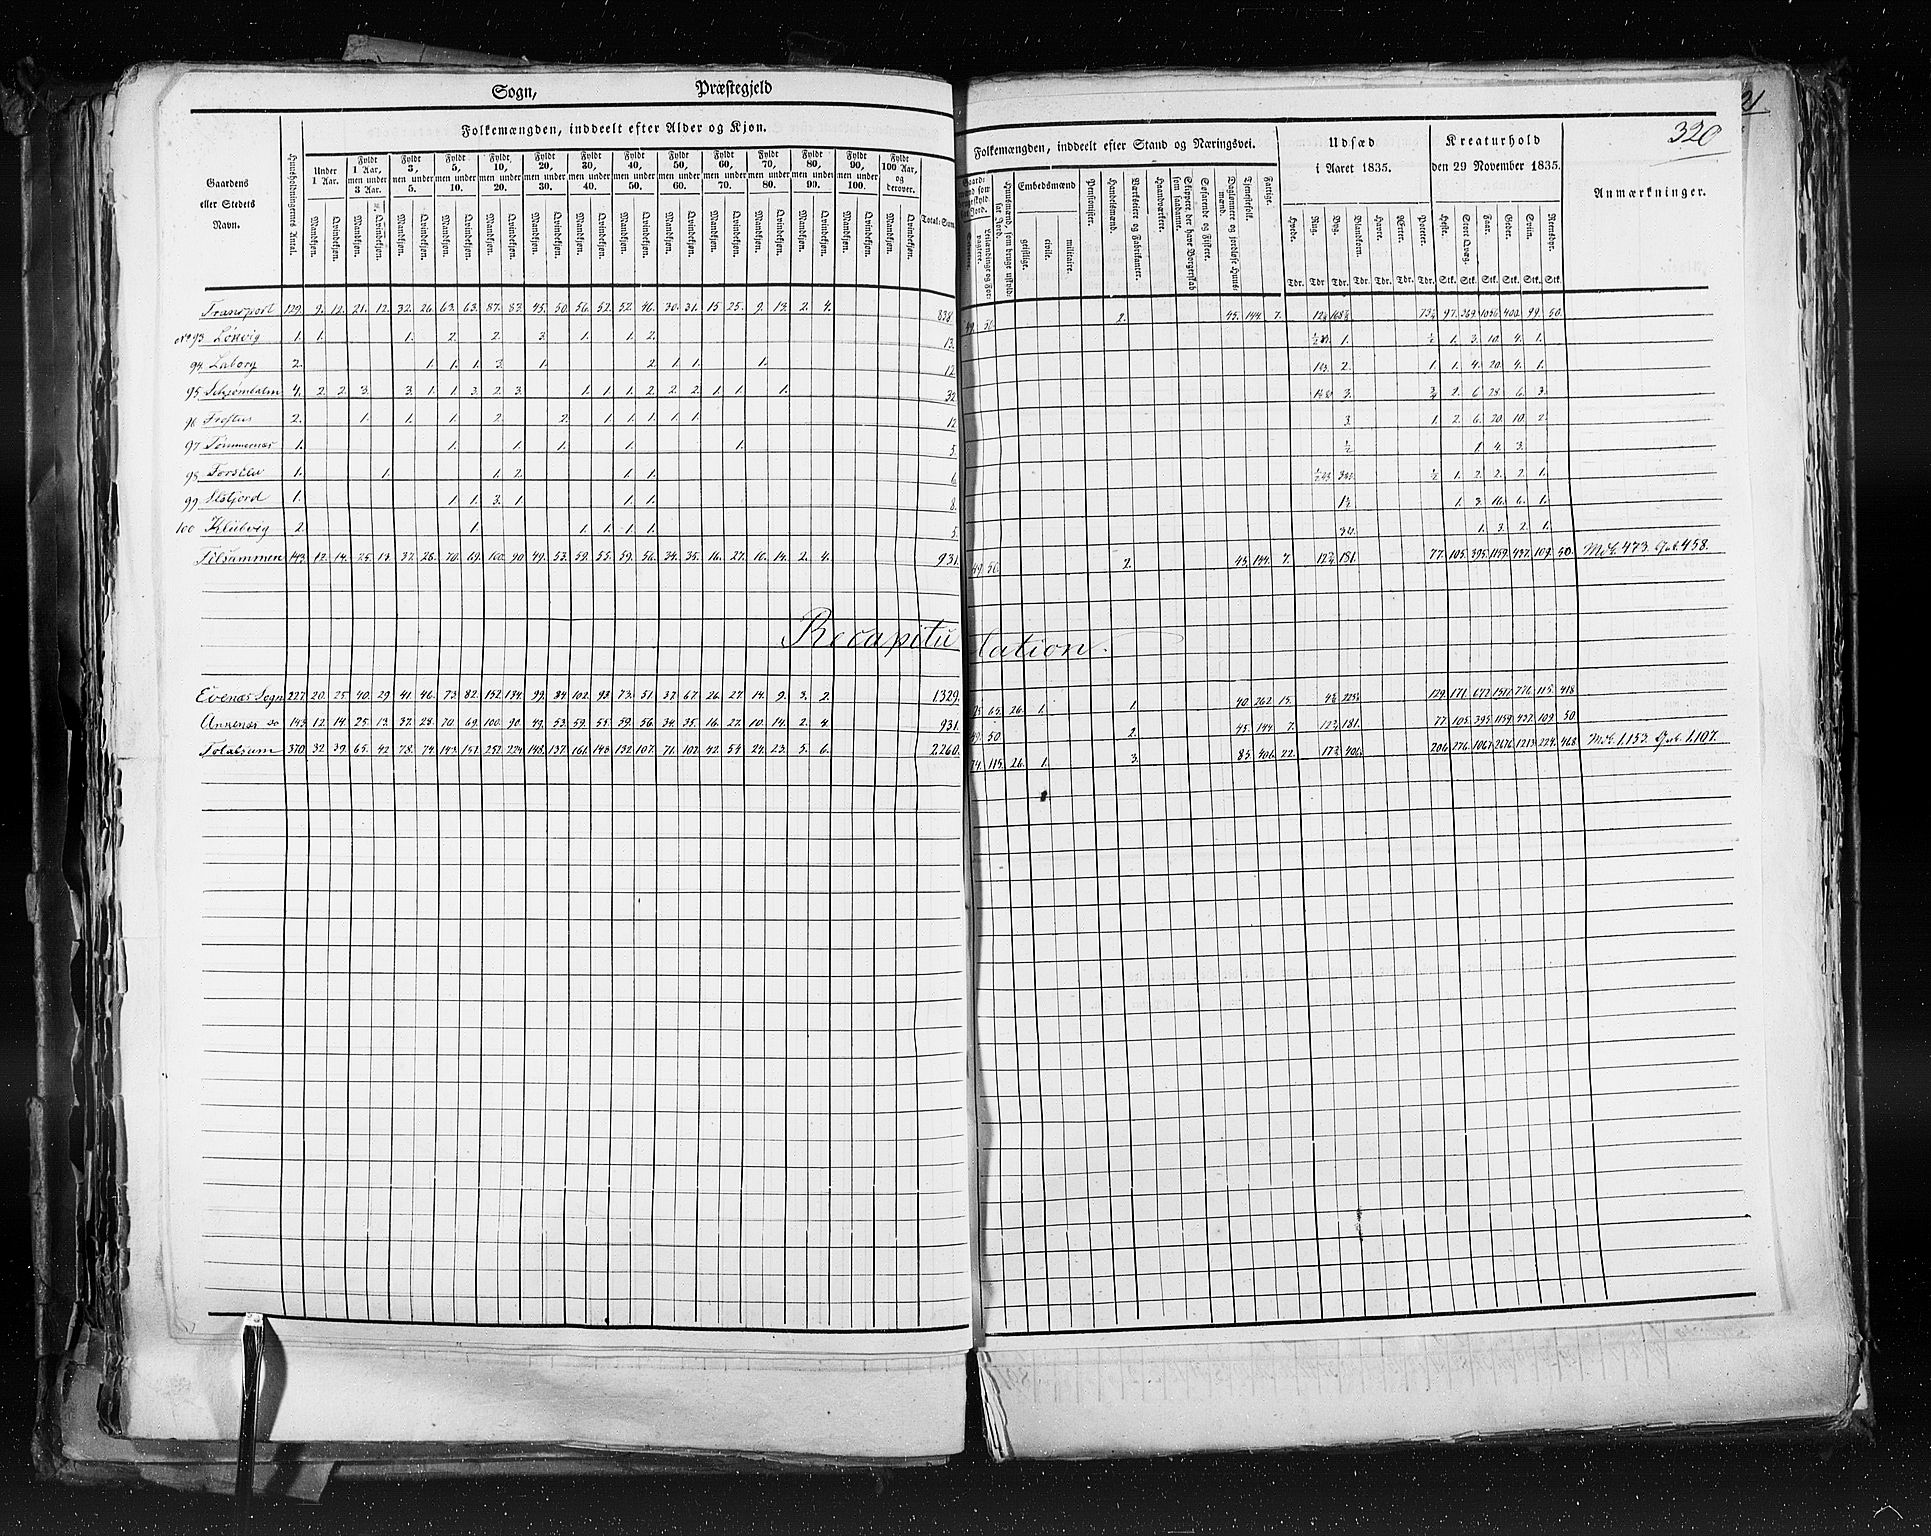 Sogn, Præstegjeld
320
21
Folkemængden, inddeelt efter Alder og Kjøn.
Folkemængden, inddeelt efter Stand og Næringsvei.
Udsæd i Aaret 1835.
Kreaturhold den 29 November 1835.
Anmærkninger.
Gaardens eller Stedets Navn.
Huusholdningernes Antal.
Under 1 Aar. Fyldt 1 Aar, men under 3 Aar. Fyldt 3, men under 5. Fyldt 5, men under 10. Fyldt 10, men under 20. Fyldt 20, men under 30. Fyldt 30, men under 40. Fyldt 40, men under 50. Fyldt 50, men under 60. Fyldt 60, men under 70. Fyldt 70, men under 80. Fyldt 80, men under 90. Fyldt 90, men under 100. Fyldt 100 Aar, og derover.
Mandkjøn. Qvindekjøn. Total-Sum.
Embedsmænd geistlige. civile. militaire. Pensionister. Handelsmænd. Værkseiere og Fabrikanter. Haandværkere. Skippere, der have Borgerskab som saadanne. Søfarende og Fiskere. Daglønnere og jordløse Huusmænd. Tjenestefolk. Fattige.
Hvede. Rug. Byg. Blandkorn. Havre. Erter. Poteter. Heste. Stort Qvæg. Faar. Geder. Sviin. Rensdyr.
Tdr. Tdr. Tdr. Tdr. Tdr. Tdr. Tdr. Stk. Stk. Stk. Stk. Stk. Stk.
Transport 129. 9. 12. 21. 12. 32. 26. 63. 63. 87. 83. 45. 50. 56. 52. 52. 46. 30. 31. 15. 25. 9. 13. 2. 4. 838. 49. 50. 2. 45. 144. 7. 97. 369. 1056. 400. 99. 50.
No 93 Lenvig 1. 1. 1. 2. 2. 3. 1. 1. 2. 13. 1. ½ 1. 3. 10. 4. 1.
94 Laberg 2. 1. 1. 1. 3. 1. 2. 1. 1. 1. 12. 2. 1. 1. 4. 20. 4. 1.
95 4. 2. 2. 3. 3. 1. 1. 3. 2. 3. 1. 1. 1. 2. 2. 2. 1. 1. 1. 32. 3. 2. 6. 28. 6. 3.
96 2. 1. 1. 1. 2. 2. 1. 1. 1. 1. 1. 12. 3. 1. 2. 6. 20. 10. 2.
97 Tømmernæs 1. 1. 1. 1. 1. 1. 5. ½ 1. 4. 3.
98 1. 1. 1. 2. 1. 1. 6. ½ 1. 2. 2. 2. 1.
99 1. 1. 1. 3. 1. 1. 1. 8. 1. 3. 16. 6. 1.
100 Klubvig 2. 1. 1. 1. 1. 1. 5. 1. 3. 2. 1.
Tilsammen 143. 12. 14. 25. 13. 37. 28. 70. 69. 100. 90. 49. 53. 59. 55. 59. 56. 34. 35. 16. 27. 10. 14. 2. 4. 931. 49. 50. 2. 45. 144. 7. 12¾ 181. 77. 105. 395. 1159. 437. 109. 50. Mdk. 473. Qvk. 458.
Recapitulation.
Evenæs Sogn 227. 20. 25. 40. 29. 41. 46. 73. 82. 152. 134. 99. 84. 102. 93. 73. 51. 37. 67. 26. 27. 14. 9. 3. 2. 1329. 25. 65. 26. 1. 1. 40. 262. 15. 129. 171. 672. 1517. 776. 115. 418.
Ankenæs do 143. 12. 14. 25. 13. 37. 28. 70. 69. 100. 90. 49. 53. 59. 55. 59. 56. 34. 35. 16. 27. 10. 14. 2. 4. 931. 49. 50. 2. 45. 144. 7. 12¾ 181. 77. 105. 395. 1159. 437. 109. 50.
Totalsum 370. 32. 39. 65. 42. 78. 74. 143. 151. 252. 224. 148. 137. 161. 148. 132. 107. 71. 102. 42. 54. 24. 23. 5. 6. 2260. 74. 115. 26. 1. 3. 85. 406. 22. 206. 276. 1067. 2676. 1213. 224. 468. Mdk. 1.153. Qvk. 1.107.